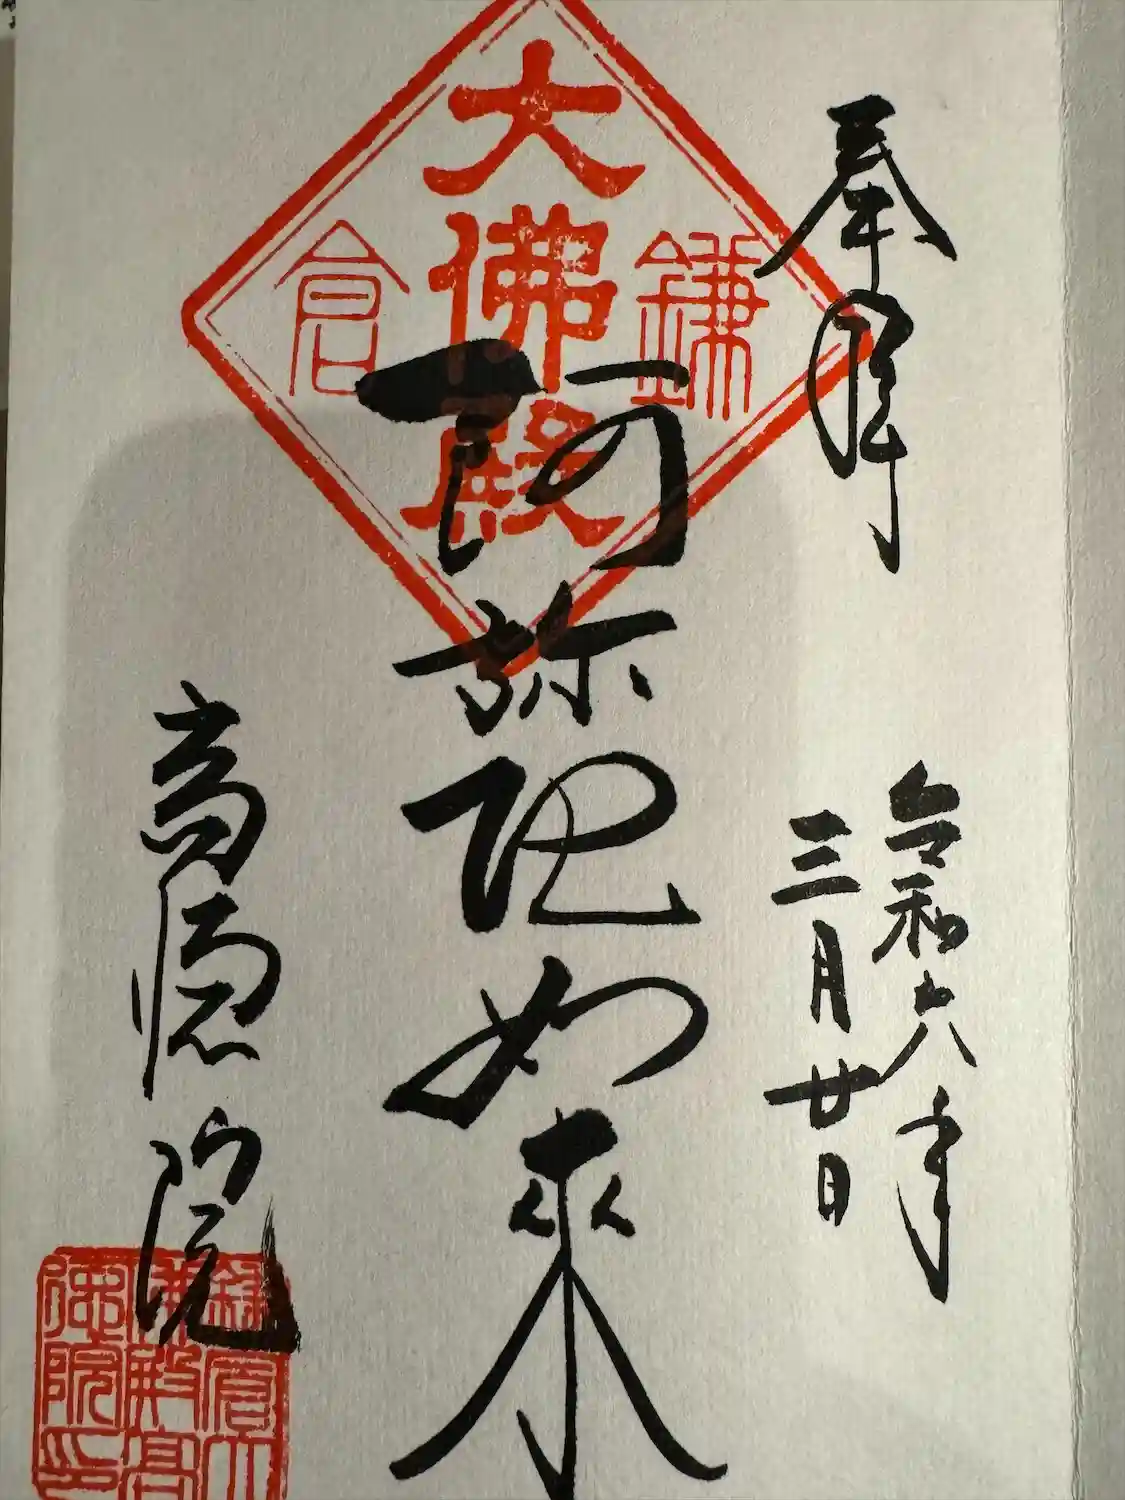 奉拝
令和六年
三月廿日
大佛殿
鎌倉
阿弥陀如来
高徳院
鎌倉大
佛殿高
徳院印